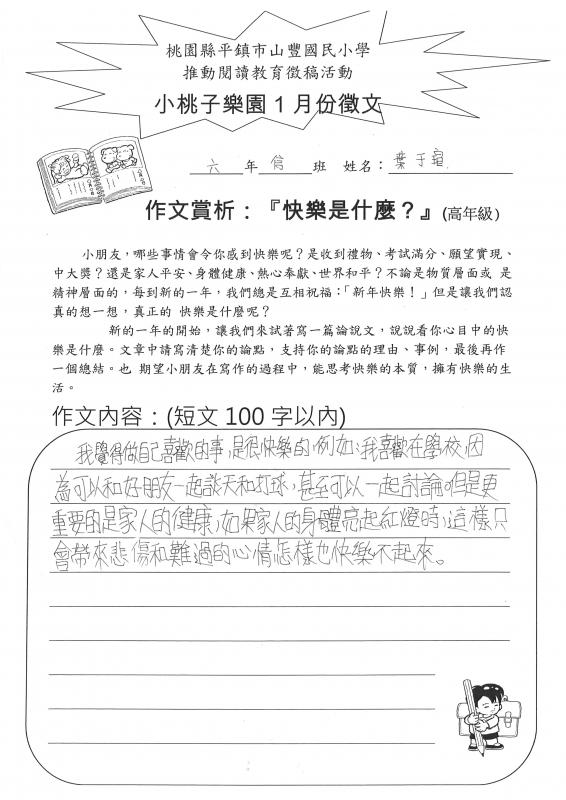 桃園縣平鎮市山豐國民小學
推動閱讀教育徵稿活動
小桃子樂園1月份徵文
六年信班 姓名：葉于
作文賞析：『快樂是什麼？』(高年級)
小朋友，哪些事情會令你感到快樂呢？是收到禮物、考試滿分、願望實現、
中大獎？還是家人平安、身體健康、熱心奉獻、世界和平？不論是物質層面或 是
精神層面的，每到新的一年，我們總是互相祝福：「新年快樂！」但是讓我們認
真的想一想，真正的 快樂是什麼呢？
新的一年的開始，讓我們來試著寫一篇論說文，說說看你心目中的快
樂是什麼。文章中請寫清楚你的論點，支持你的論點的理由、事例，最後再作
一個總結。也 期望小朋友在寫作的過程中，能思考快樂的本質，擁有快樂的生
活。
作文內容：(短文100字以內)
我覺得做自己喜歡的事，是很快樂的，例如：我喜歡在學校，因
為可以和好朋友一起談天和打球，甚至可以一起討論，但是更
重要的是家人的健康，如果家人的身體亮起紅燈時，這樣只
會帶來悲傷和難過的心情怎樣也快樂不起來。